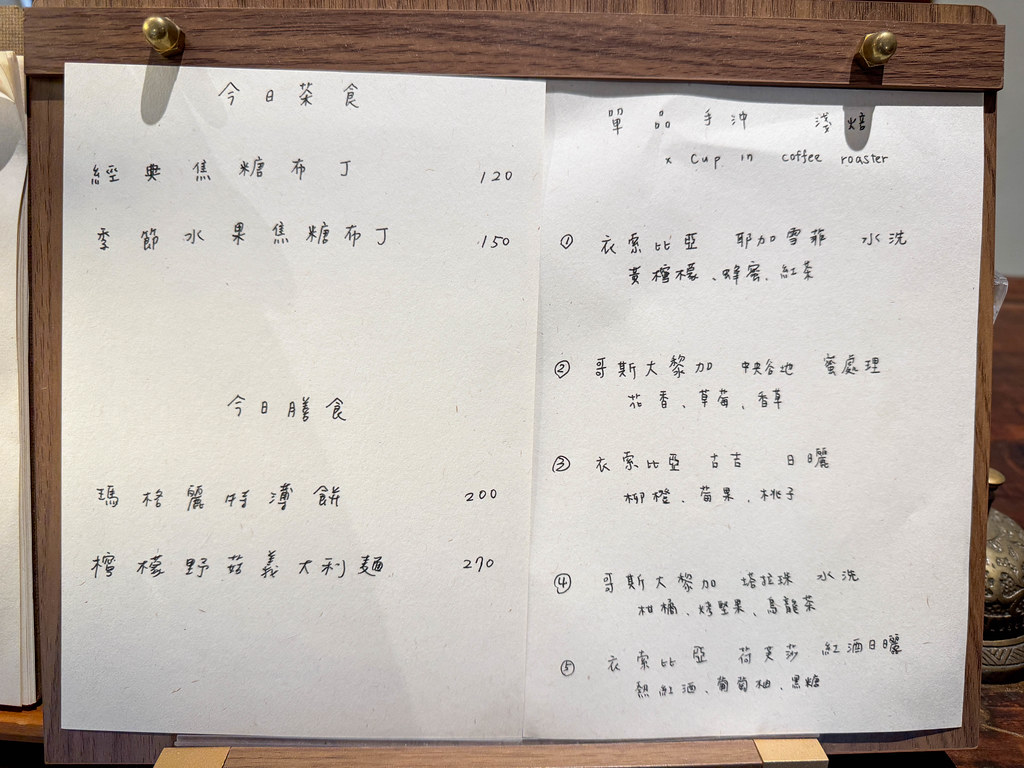 今日茶食
經典焦糖布丁 120
季節水果焦糖布丁 150
今日膳食
瑪格麗特薄餅 200
檸檬野菇義大利麵 270
單品手沖 淺焙
x Cup in coffee roaster
① 衣索比亞 耶加雪菲 水洗
黃檸檬、蜂蜜、紅茶
② 哥斯大黎加 中央谷地 蜜處理
花香、草莓、香草
③ 衣索比亞 古吉 日曬
柳橙、莓果、桃子
④ 哥斯大黎加 塔拉珠 水洗
柑橘、烤堅果、烏龍茶
⑤ 衣索比亞 荷芙莎 紅酒日曬
熱紅酒、葡萄柚、黑糖